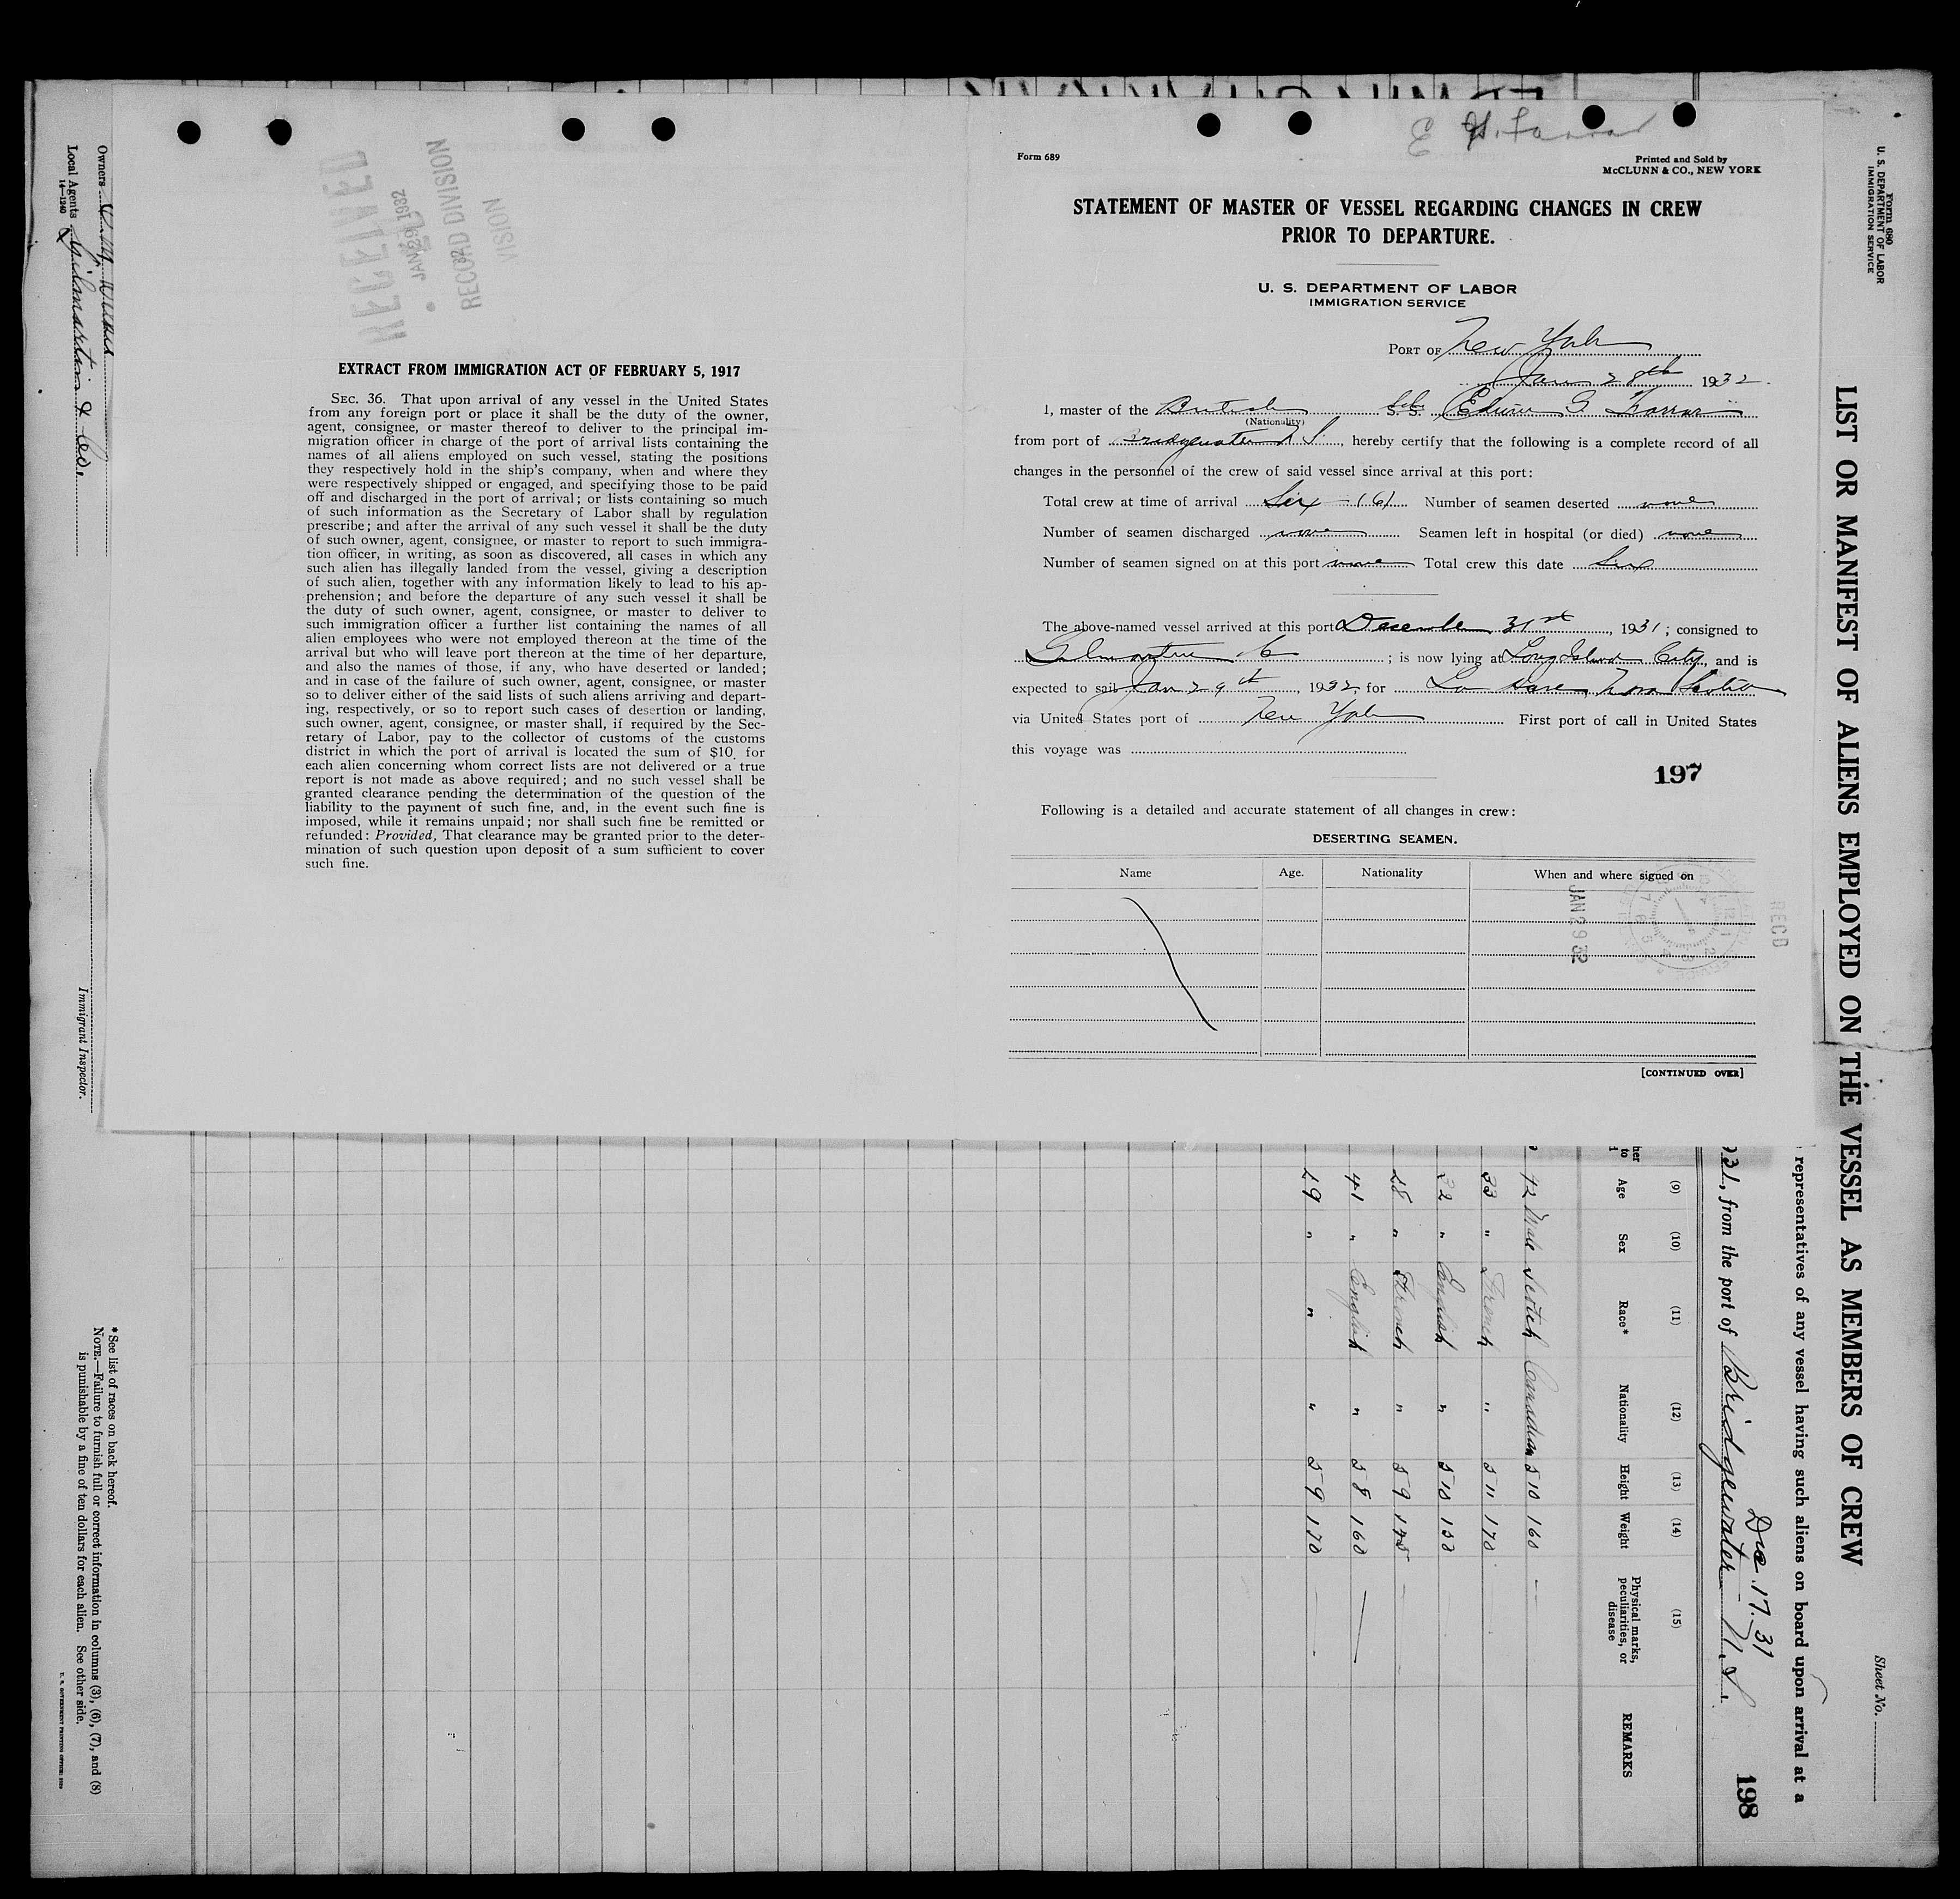 E G. Farrar
Form 689
Printed and Sold by
McCLUNN & CO., NEW YORK
STATEMENT OF MASTER OF VESSEL REGARDING CHANGES IN CREW
PRIOR TO DEPARTURE.
U. S. DEPARTMENT OF LABOR
IMMIGRATION SERVICE
PORT OF New York
Jan 28th 1932
I, master of the British S.S. Edwin G Farrar
(Nationality)
from port of Bridgewater N S., hereby certify that the following is a complete record of all
changes in the personnel of the crew of said vessel since arrival at this port:
Total crew at time of arrival Six (6) Number of seamen deserted none
Number of seamen discharged none Seamen left in hospital (or died) none
Number of seamen signed on at this port none Total crew this date Six
The above-named vessel arrived at this port December 31st, 1931; consigned to
; is now lying at Long Island City, and is
expected to sail Jan 29th, 1932, for La Have, Nova Scotia
via United States port of New York First port of call in United States
this voyage was
197
Following is a detailed and accurate statement of all changes in crew:
DESERTING SEAMEN.
Name Age. Nationality When and where signed on
JAN 29 32
RECD
[CONTINUED OVER]
RECEIVED
JAN 29 1932
RECORD DIVISION
VISION
EXTRACT FROM IMMIGRATION ACT OF FEBRUARY 5, 1917
SEC. 36. That upon arrival of any vessel in the United States
from any foreign port or place it shall be the duty of the owner,
agent, consignee, or master thereof to deliver to the principal im-
migration officer in charge of the port of arrival lists containing the
names of all aliens employed on such vessel, stating the positions
they respectively hold in the ship's company, when and where they
were respectively shipped or engaged, and specifying those to be paid
off and discharged in the port of arrival; or lists containing so much
of such information as the Secretary of Labor shall by regulation
prescribe; and after the arrival of any such vessel it shall be the duty
of such owner, agent, consignee, or master to report to such immigra-
tion officer, in writing, as soon as discovered, all cases in which any
such alien has illegally landed from the vessel, giving a description
of such alien, together with any information likely to lead to his ap-
prehension; and before the departure of any such vessel it shall be
the duty of such owner, agent, consignee, or master to deliver to
such immigration officer a further list containing the names of all
alien employees who were not employed thereon at the time of the
arrival but who will leave port thereon at the time of her departure,
and also the names of those, if any, who have deserted or landed;
and in case of the failure of such owner, agent, consignee, or master
so to deliver either of the said lists of such aliens arriving and depart-
ing, respectively, or so to report such cases of desertion or landing,
such owner, agent, consignee, or master shall, if required by the Sec-
retary of Labor, pay to the collector of customs of the customs
district in which the port of arrival is located the sum of $10 for
each alien concerning whom correct lists are not delivered or a true
report is not made as above required; and no such vessel shall be
granted clearance pending the determination of the question of the
liability to the payment of such fine, and, in the event such fine is
imposed, while it remains unpaid; nor shall such fine be remitted or
refunded: Provided, That clearance may be granted prior to the deter-
mination of such question upon deposit of a sum sufficient to cover
such fine.
Form 680
U. S. DEPARTMENT OF LABOR
IMMIGRATION SERVICE
Sheet No.
LIST OR MANIFEST OF ALIENS EMPLOYED ON THE VESSEL AS MEMBERS OF CREW
representatives of any vessel having such aliens on board upon arrival at a
Dec 17.31
31, from the port of Bridgewater N.S.
198
(9) (10) (11) (12) (13) (14) (15)
Age Sex Race* Nationality Height Weight Physical marks, peculiarities, or disease REMARKS
42 Male Scotch Canadian 5 10 160
33 " French " 5 11 170
22 " English " 5 10 150
28 " French " 5 9 145
41 " English " 5 8 160
29 " " " 5 9 170
*See list of races on back hereof.
NOTE.—Failure to furnish full or correct information in columns (3), (6), (7), and (8)
is punishable by a fine of ten dollars for each alien. See other side.
U. S. GOVERNMENT PRINTING OFFICE
Immigrant Inspector.
Owners
Local Agents Gilmartin & Co.
14—1240